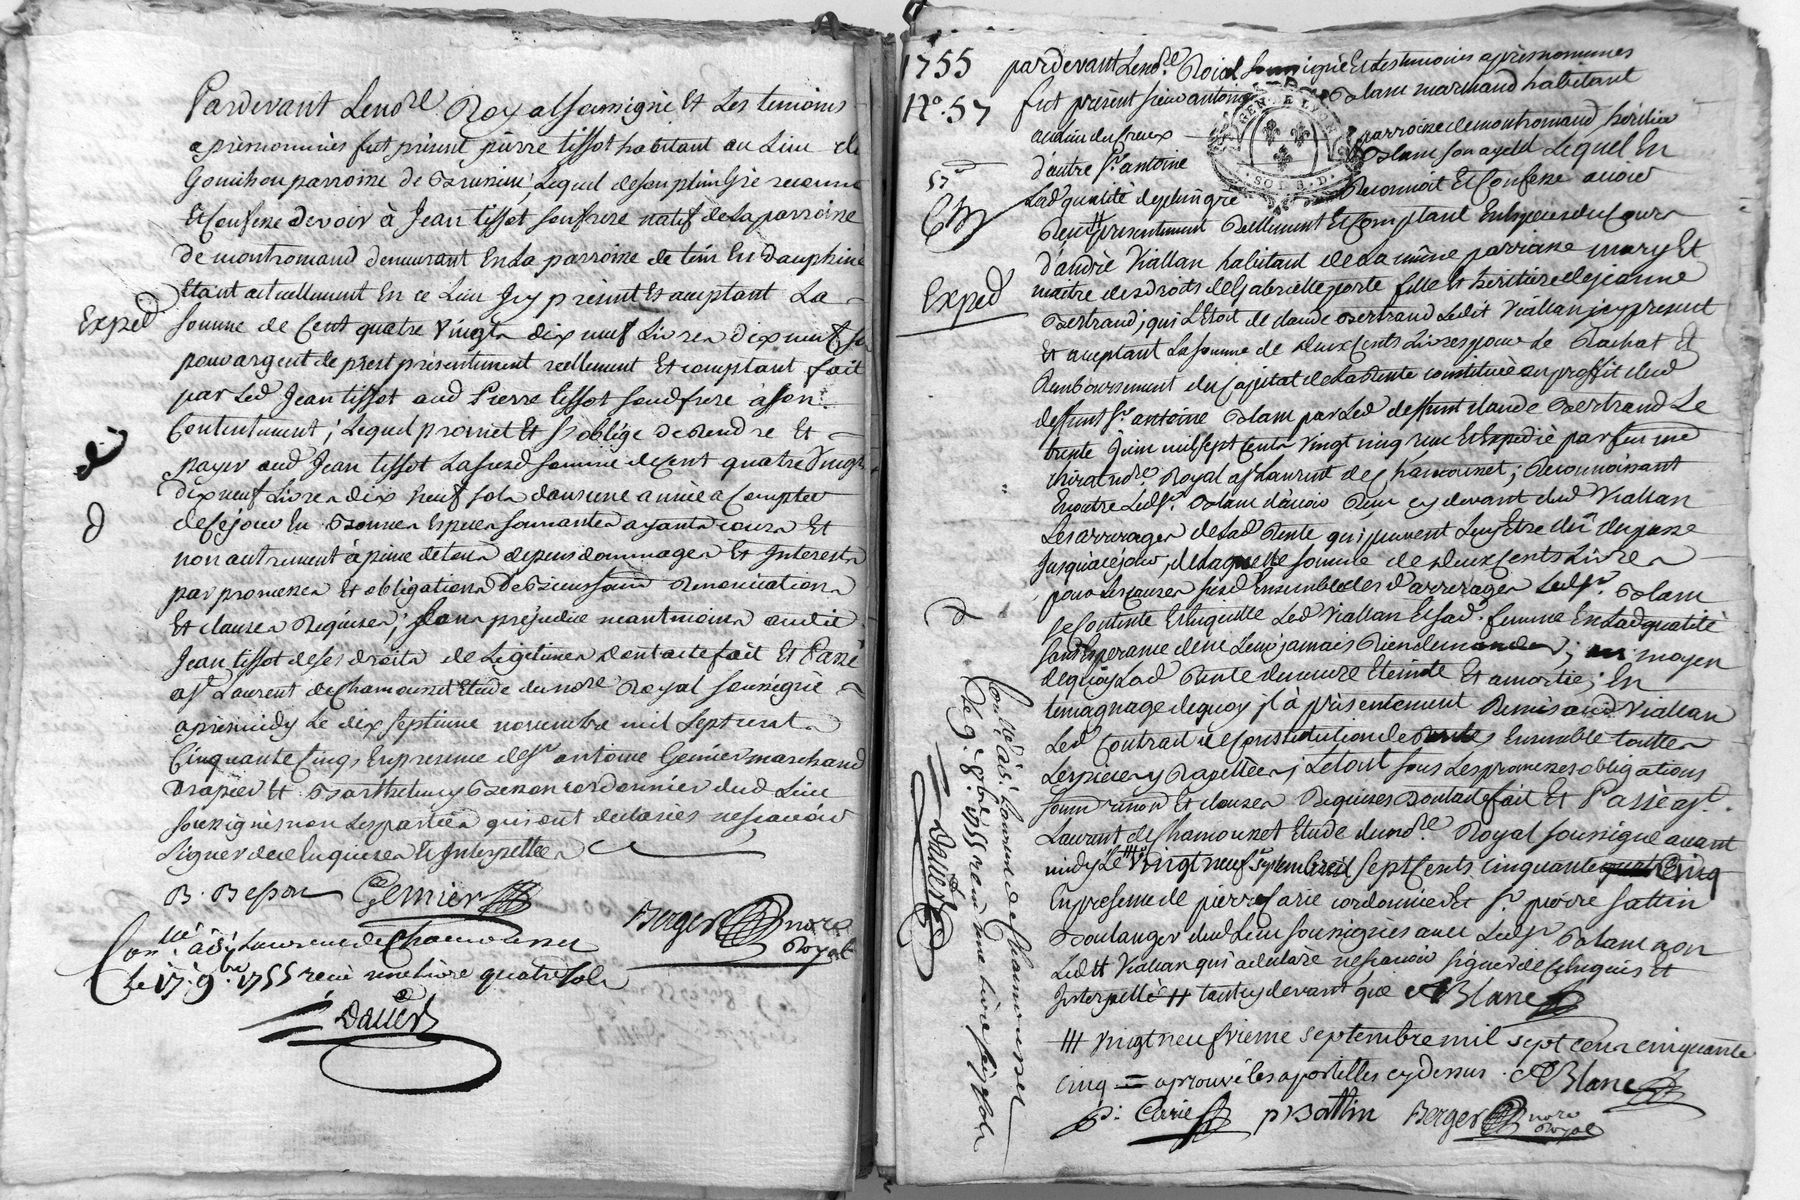 Pardevant Lenore Royal soussigné Et Les temoins
apresnommés fut present pierre tissot habitant au Lieu de
parroisse de Brussieu, Lequel de son plein Gré reconnu
Et Confesse devoir à Jean tissot son frere natif de la parroisse
de montromand demeurant En La parroisse de En dauphiné
Etant actuellement En ce Lieu Icy present Et acceptant La
Exped
somme de Cent quatre Vingts dix neuf Livres dix neuf sols
pour argent de prest presentement reellement Et comptant fait
par Led Jean tissot aud Pierre tissot soud frere a son
Contentement; Lequel promet Et s'oblige de rendre Et
payer aud Jean tissot La susd somme de Cent quatre Vingts
dix neuf Livres dix neuf sols dans une année a Compter
de Ce jour En Bonnes Especes sonnantes ayants cours Et
non autrement à peine de tous depens dommages Et Interests
par promesses Et obligations De Biens soum Renonciations
Et clauses Requises; sans prejudice neantmoins audit
Jean tissot de ses droits de Legitimes dont acte fait Et Passé
a St Laurent de Chamousset Etude dud nore Royal soussigné
apresmidy Le dix septieme novembre mil sept cent
Cinquante Cinq, En presence de Sr antoine Gemier marchand
drapier Et Barthelemy Besson cordonnier dud Lieu
soussignés non Les parties qui ont declarés ne scavoir
signer de ce Enquises Et Interpellées
B. Besson Gemier
Berger nore Royal
Conllé à St Laurent de Chamousset
Le 17. 9bre 1755 receu une livre quatre sols
Daver
1755
No. 57
57e
Exped
pardevant Lenore Roial soussigné Et Les temoins apresnommes
fut present sieur antoine Blanc marchand habitant
au Lieu du Creux parroisse de montromand, heritier
d'autre Sr antoine Blanc son ayeul Lequel En
Lad qualité de plein gré Reconnoit Et Confesse avoir
Reçu presentement Reellement Et Comptant En Especes du Cours
d'andré Viallan habitant de La même parroisse mary Et
maitre des droits de Gabrielle porte fille Et heritiere de jeanne
Bertrand, qui L'Etoit de claude Bertrand Ledit Viallan jcy present
Et acceptant La somme de deux Cents Livres pour Le Rachat Et
Remboursement du Capital de La Rente constituée au proffit dud
deffunt Sr antoine Blanc par Led deffunt claude Bertrand Le
trente Juin mil sept Cents Vingt cinq recu Et Expedié par feu me
nore Royal a St Laurent de Chamousset; Reconnoissant
Enoutre Led Sr Blanc d'avoir Reçu cy devant dud Viallan
Les arrerages de Lad Rente qui peuvent Luy Etre dû du passé
Jusqu'a ce jour, de Laquelle somme de deux Cents Livres
pour Les causes susd Ensemble des d'arrerages Led Sr Blanc
se Contente Et En quitte Led Viallan Et sad. femme En Lad qualité
sans Esperance de ne Leur jamais Rien demander; au moyen
de quoy Lad Rente demeure Eteinte Et amortie; En
temoignage de quoy jl à presentement Remis aud Viallan
Led Contrat de Constitution de Rentes Ensemble toutes
Les pieces y Rapellées; Le tout sous Les promesses obligations
soum renon Et clauses Requises Dont acte fait Et Passé a St.
Laurent de Chamousset Etude dud nore Royal soussigné avant
midy Le Vingt neuf septembre mil sept Cents cinquante cinq
En presence de pierre Carie cordonnier Et Sr pierre Battin
Boulanger dud Lieu soussignés avec Led Sr Blanc non
Led Viallan qui a declaré ne scavoir signer de ce Enquis Et
Interpellé H tant cy devant que ABlanc
vingt neufvieme septembre mil sept cens cinquante
cinq = aprouvé les apostilles cy dessus. ABlanc
p: Carie pBattin Berger nore Royal
Conllé à St Laurent de Chamousset
Le 9. 8bre 1755 receu une livre six sols
Daver